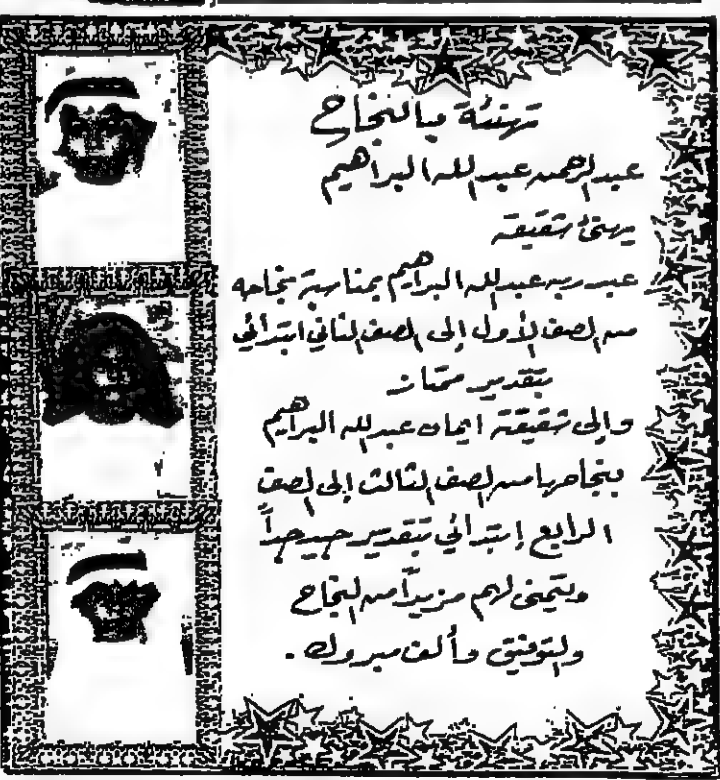 تهنئة بالنجاح
عبدالرحمن عبدالله البراهيم
يهنئ شقيقه
عبدربه عبدالله البراهيم بمناسبة نجاحه
من الصف الأول إلى الصف الثاني ابتدائي
بتقدير ممتاز
وإلى شقيقته ايمان عبدالله البراهيم
بنجاحها من الصف الثالث إلى الصف
الرابع إبتدائي بتقدير جيد جداً
ويتمنى لهم مزيداً من النجاح
والتوفيق وألف مبروك .